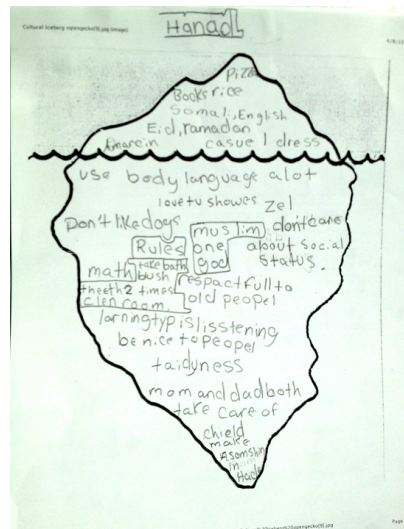 Cultural Iceberg
Hanad
Pizza
Books rice
Somali, English
Eid, ramadan
Amarcin casue l dress
use body language alot
love tv showes zel
Don't like dogs
muslim
one
god
dont care
aboout social
status.
Rules
take bath
bush
theeth 2 times
clen room.
math
respactfull to
old peopel
larning typ is lisstening
be nice to peopel
taidyness
mom and dad both
take care of
chield
make
in
Page